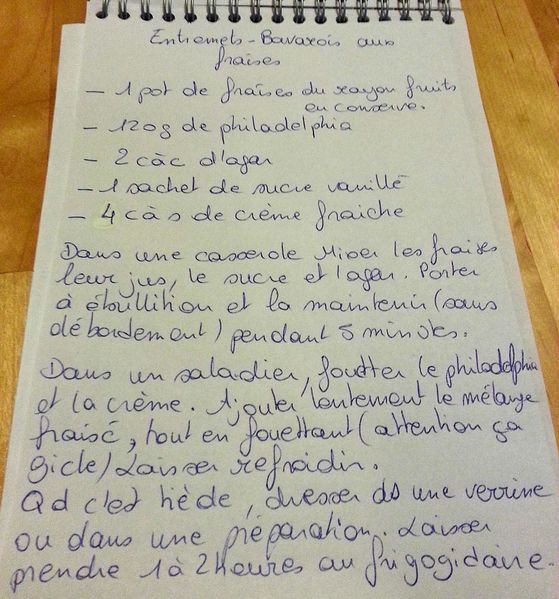 Entremets - Bavarois aux
fraises
- 1 pot de fraises du rayon fruits
en conserve.
- 120g de philadelphia
- 2 càc d'agar
- 1 sachet de sucre vanillé
- 4 càs de crème fraiche
Dans une casserole Mixer les fraises
leur jus, le sucre et l'agar. Porter
à ébullition et la maintenir (sans
débordement) pendant 5 minutes.
Dans un saladier, fouetter le philadelphia
et la crème. Ajouter lentement le mélange
fraisé, tout en fouettant (attention ça
gicle) Laisser refroidir.
Qd c'est tiède, dresser ds une verrine
ou dans une préparation. Laisser
prendre 1 à 2 heures au frigogidaire.